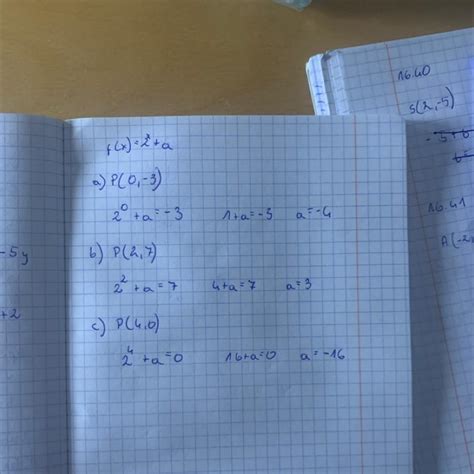 f(x)=2ˣ+a
a) P(0,-3)
2⁰+a=-3 1+a=-3 a=-4
b) P(2,7)
2²+a=7 4+a=7 a=3
c) P(4,0)
2⁴+a=0 16+a=0 a=-16
-5y
+2
16.40
S(2,-5)
16.41
A(-2,